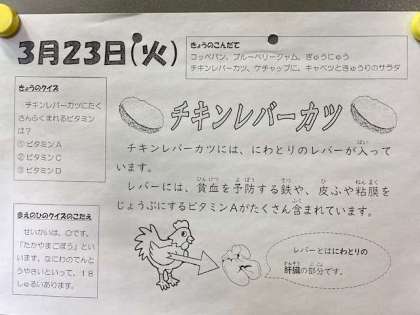 3月23日(火)
きょうのこんだて
コッペパン、ブルーベリージャム、ぎゅうにゅう
チキンレバーカツ、ケチャップに、キャベツときゅうりのサラダ
きょうのクイズ
チキンレバーカツにたく
さんふくまれるビタミン
は?
①ビタミンA
②ビタミンC
③ビタミンD
チキンレバーカツ
チキンレバーカツには、にわとりのレバーが入って
います。
レバーには、貧血を予防する鉄や、皮ふや粘膜を
じょうぶにするビタミンAがたくさん含まれています。
まえのひのクイズのこたえ
せいかいは、
「たかやまごぼう」とい
います。なにわのでんと
うやさいといって、18
しゅるいあります。
レバーとはにわとりの
肝臓の部分です。